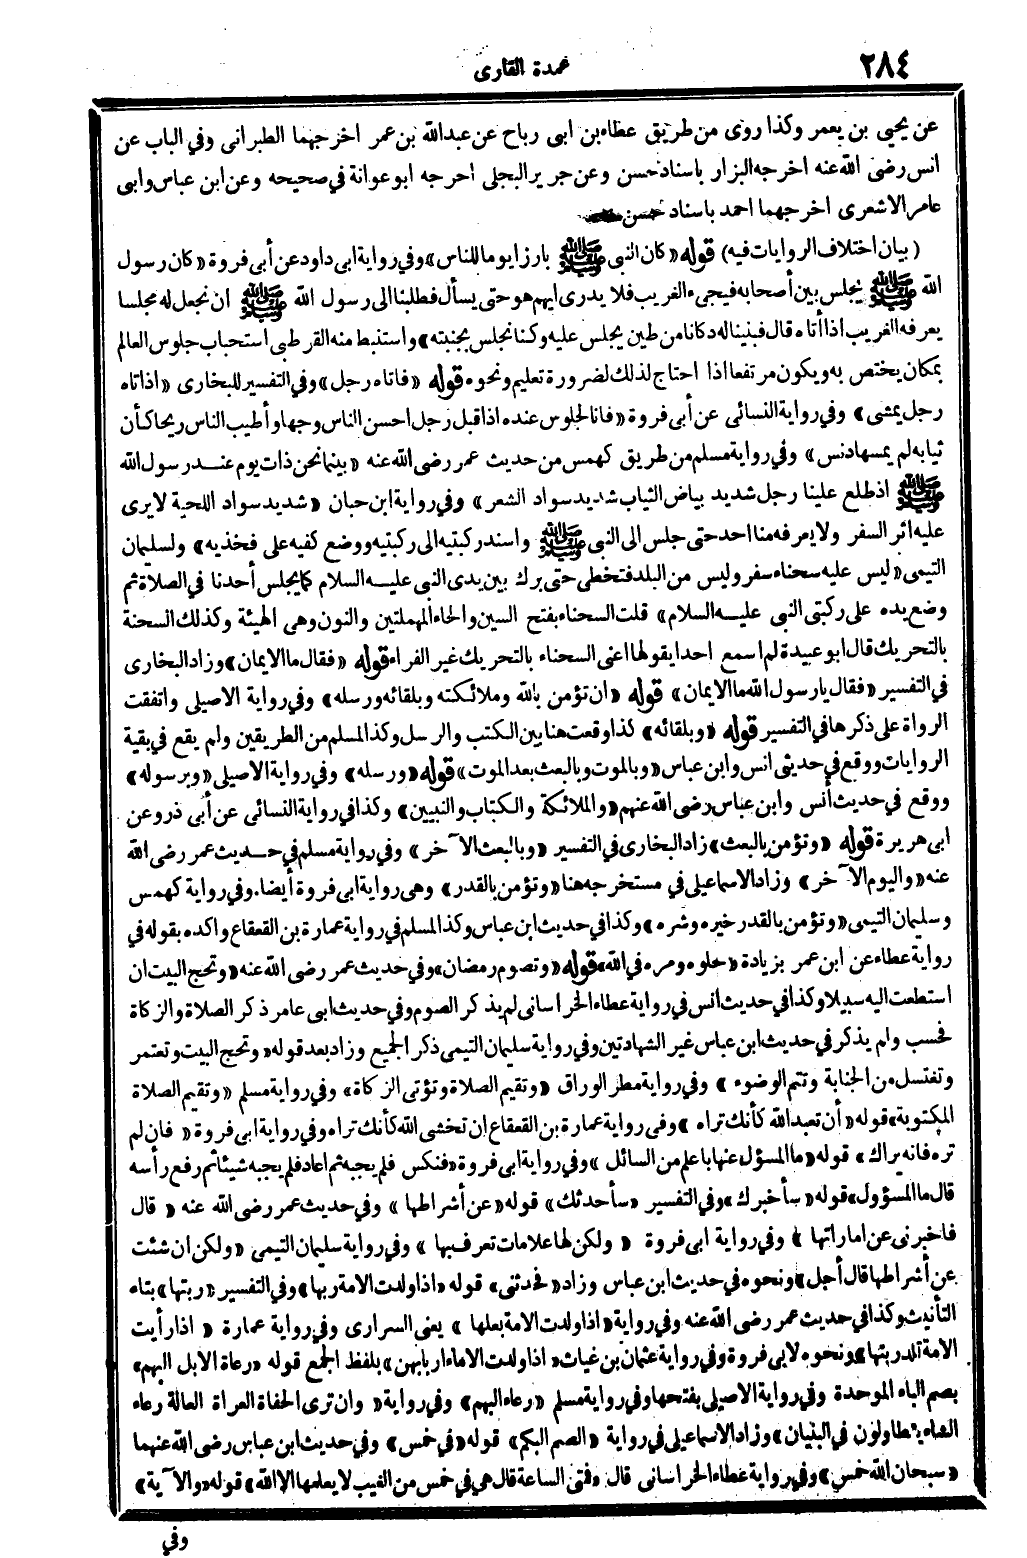 ٢٨٤
عمدة القارى
عن يحيى بن يعمر وكذا روى من طريق عطاء بن ابى رباح عن عبدالله بن عمر اخرجهما الطبرانى وفي الباب عن
انس رضى الله عنه اخرجه البزار باسناد حسن وعن جرير البجلى أخرجه ابو عوانة في صحيحه وعن ابن عباس وابى
عامر الاشعرى اخرجهما احمد باسناد حسن
( بيان اختلاف الروايات فيه) قوله «كان النبى ﷺ بارزا يوما للناس» وفي رواية ابى داود عن أبى فروة «كان رسول
الله ﷺ يجلس بين أصحابه فيجىء الغريب فلا يدرى ايهم هو حتى يسأل فطلبنا الى رسول الله ﷺ ان نجعل له مجلسا
يعرفه الغريب اذا أتاه قال فبنينا له دكانا من طين يجلس عليه وكنا نجلس بجنبته» واستنبط منه القرطبى استحباب جلوس العالم
بمكان يختص به ويكون مرتفعا اذا احتاج لذلك لضرورة تعليم ونحوه قوله «فاتاه رجل» وفي التفسير للبخارى «اذ اتاه
رجل يمشى» وفي رواية النسائى عن أبى فروة «فانا لجلوس عنده اذ اقبل رجل احسن الناس وجها وأطيب الناس ريحا كأن
ثيابه لم يمسها دنس» وفي رواية مسلم من طريق كهمس من حديث عمر رضى الله عنه «بينما نحن ذات يوم عند رسول الله
ﷺ اذ طلع علينا رجل شديد بياض الثياب شديد سواد الشعر» وفي رواية ابن حبان «شديد سواد اللحية لا يرى
عليه اثر السفر ولا يعرفه منا احد حتى جلس الى النبى ﷺ واسند ركبتيه الى ركبتيه ووضع كفيه على فخذيه» ولسليمان
التيمى «ليس عليه سحناء سفر وليس من البلد فتخطى حتى برك بين يدى النبى عليه السلام كما يجلس أحدنا في الصلاة ثم
وضع يده على ركبتى النبى عليه السلام» قلت السحناء بفتح السين والحاء المهملتين والنون وهى الهيئة وكذلك السحنة
بالتحريك قال ابو عبيدة لم اسمع احدا يقولها اعنى السحناء بالتحريك غير الفراء قوله «فقال ما الايمان» وزاد البخارى
في التفسير «فقال يا رسول الله ما الايمان» قوله «ان تؤمن بالله وملائكته وبلقائه ورسله» وفي رواية الاصيلى واتفقت
الرواة على ذكرها في التفسير قوله «وبلقائه» كذا وقعت هنا بين الكتب والرسل وكذا لمسلم من الطريقين ولم يقع في بقية
الروايات ووقع في حديثى انس وابن عباس «وبالموت وبالبعث بعد الموت» قوله «ورسله» وفي رواية الاصيلى «وبرسوله»
ووقع في حديث أنس وابن عباس رضى الله عنهم «والملائكة والكتاب والنبيين» وكذا في رواية النسائى عن أبى ذر وعن
ابى هريرة قوله «وتؤمن بالبعث» زاد البخارى في التفسير «وبالبعث الآخر» وفي رواية مسلم في حديث عمر رضى الله
عنه «واليوم الآخر» وزاد الاسماعيلى في مستخرجه هنا «وتؤمن بالقدر» وهى رواية ابى فروة أيضا. وفي رواية كهمس
وسليمان التيمى «وتؤمن بالقدر خيره وشره» وكذا في حديث ابن عباس وكذا لمسلم في رواية عمارة بن القعقاع واكده بقوله في
رواية عطاء عن ابن عمر بزيادة «حلوه ومره في الله» قوله «وتصوم رمضان» وفي حديث عمر رضى الله عنه «وتحج البيت ان
استطعت اليه سبيلا وكذا في حديث انس في رواية عطاء الخراسانى لم يذكر الصوم وفي حديث ابى عامر ذكر الصلاة والزكاة
فحسب ولم يذكر في حديث ابن عباس غير الشهادتين وفي رواية سليمان التيمى ذكر الجميع وزاد بعد قوله «وتحج البيت وتعتمر
وتغتسل من الجنابة وتتم الوضوء» وفي رواية مطر الوراق «وتقيم الصلاة وتؤتى الزكاة» وفي رواية مسلم «وتقيم الصلاة
المكتوبة» قوله «أن تعبد الله كأنك تراه» وفى رواية عمارة بن القعقاع ان تخشى الله كأنك تراه وفي رواية ابى فروة «فان لم
تره فانه يراك» قوله «ما المسؤل عنها باعلم من السائل» وفي رواية ابى فروة «فنكس فلم يجبه ثم اعاد فلم يجبه شيئا ثم رفع رأسه
قال ما المسؤول» قوله «سأخبرك» وفي التفسير «سأحدثك» قوله «عن أشراطها» وفي حديث عمر رضى الله عنه «قال
فاخبرنى عن اماراتها» وفي رواية ابى فروة «ولكن لها علامات تعرف بها» وفي رواية سليمان التيمى «ولكن ان شئت
عن أشراطها قال أجل» ونحوه في حديث ابن عباس وزاد «فحدثنى» قوله «اذا ولدت الامة ربها» وفي التفسير «ربتها» بتاء
التأنيث وكذا في حديث عمر رضى الله عنه وفي رواية «اذا ولدت الامة بعلها» يعنى السرارى وفي رواية عمارة «اذا رأيت
الامة تلد ربتها» ونحوه لابى فروة وفي رواية عثمان بن غياث «اذا ولدت الاماء اربابهن» بلفظ الجمع قوله «رعاة الابل البهم»
بضم الباء الموحدة وفي رواية الاصيلى بفتحها وفي رواية مسلم «رعاء البهم» وفي رواية «وان ترى الحفاة العراة العالة رعاء
الشاء يتطاولون في البنيان» وزاد الاسماعيلى في رواية «الصم البكم» قوله «في خمس» وفي حديث ابن عباس رضى الله عنهما
«سبحان الله خمس» وفي رواية عطاء الخراسانى قال «فمتى الساعة قال هى في خمس من الغيب لا يعلمها الا الله» قوله «والآية»
وفي